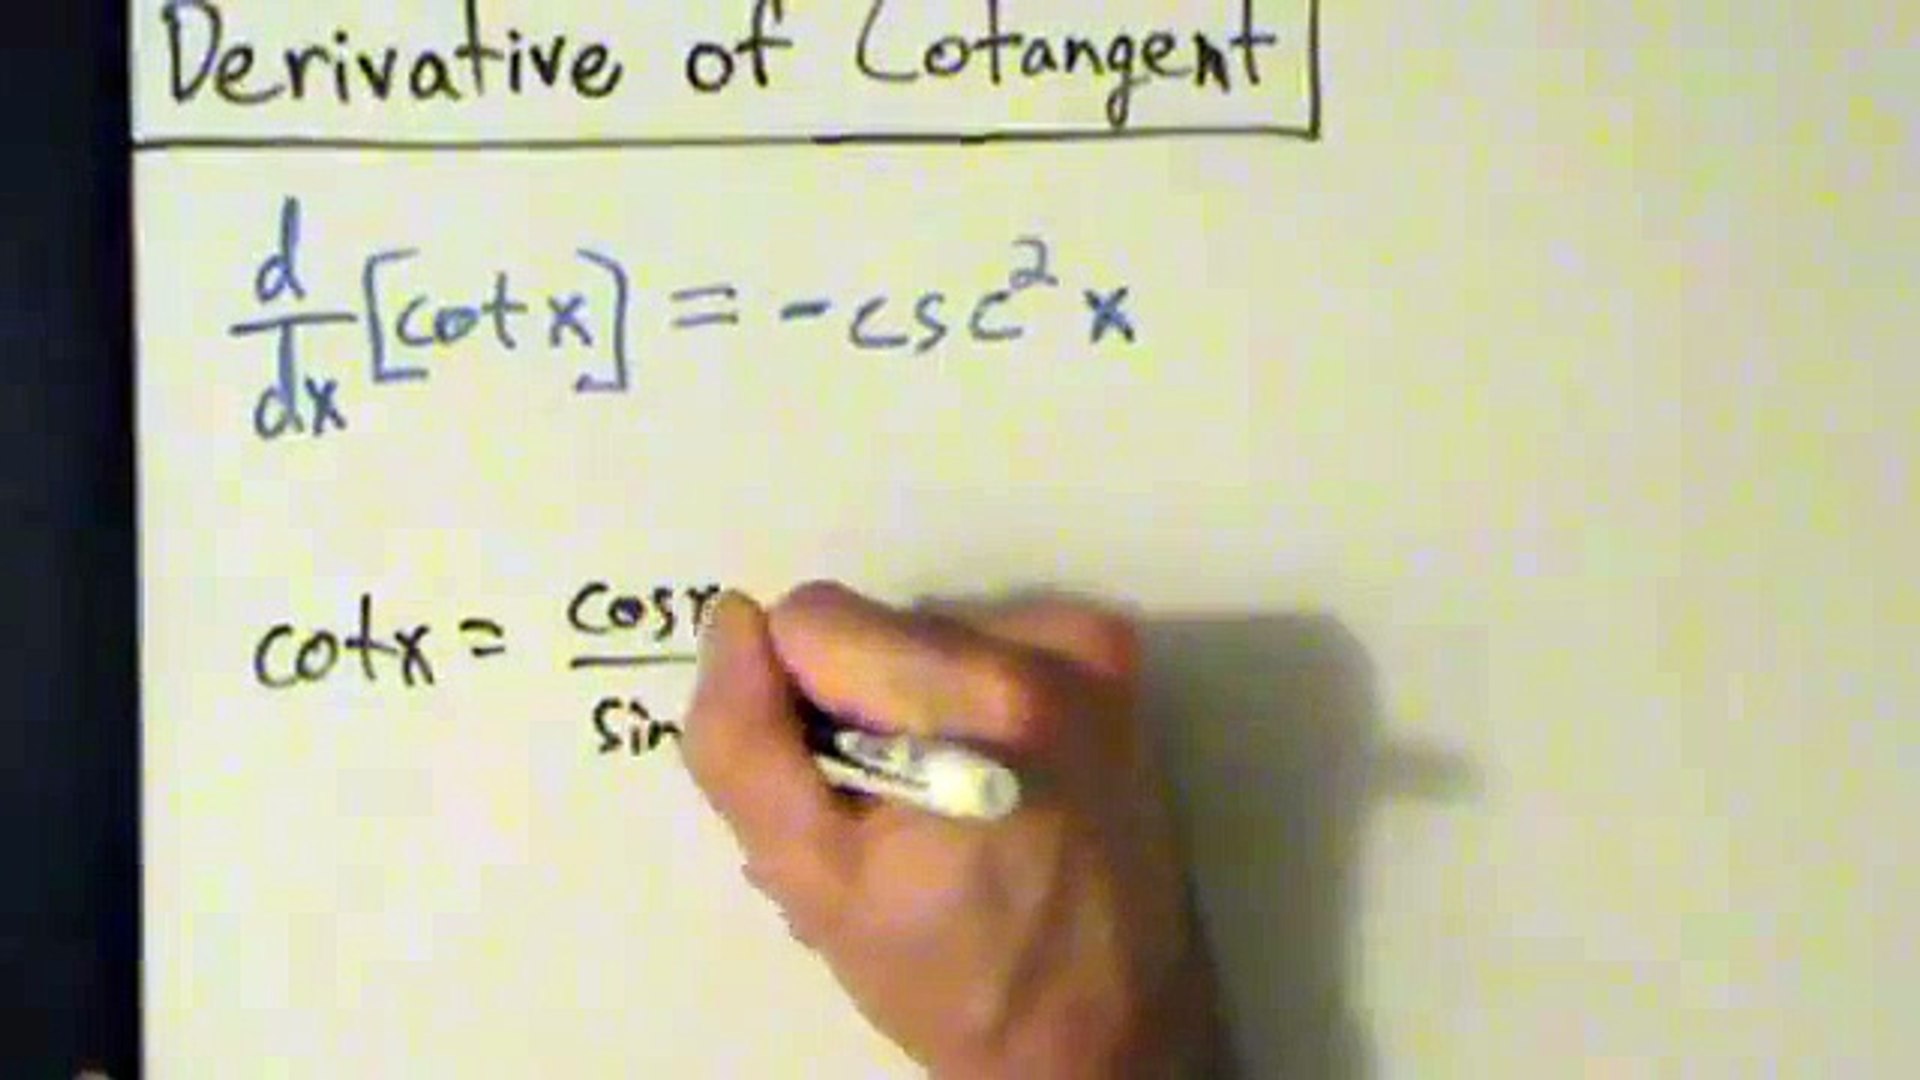 Derivative of Cotangent
d/dx [cot x] = -csc² x
cotx = cosx/sin